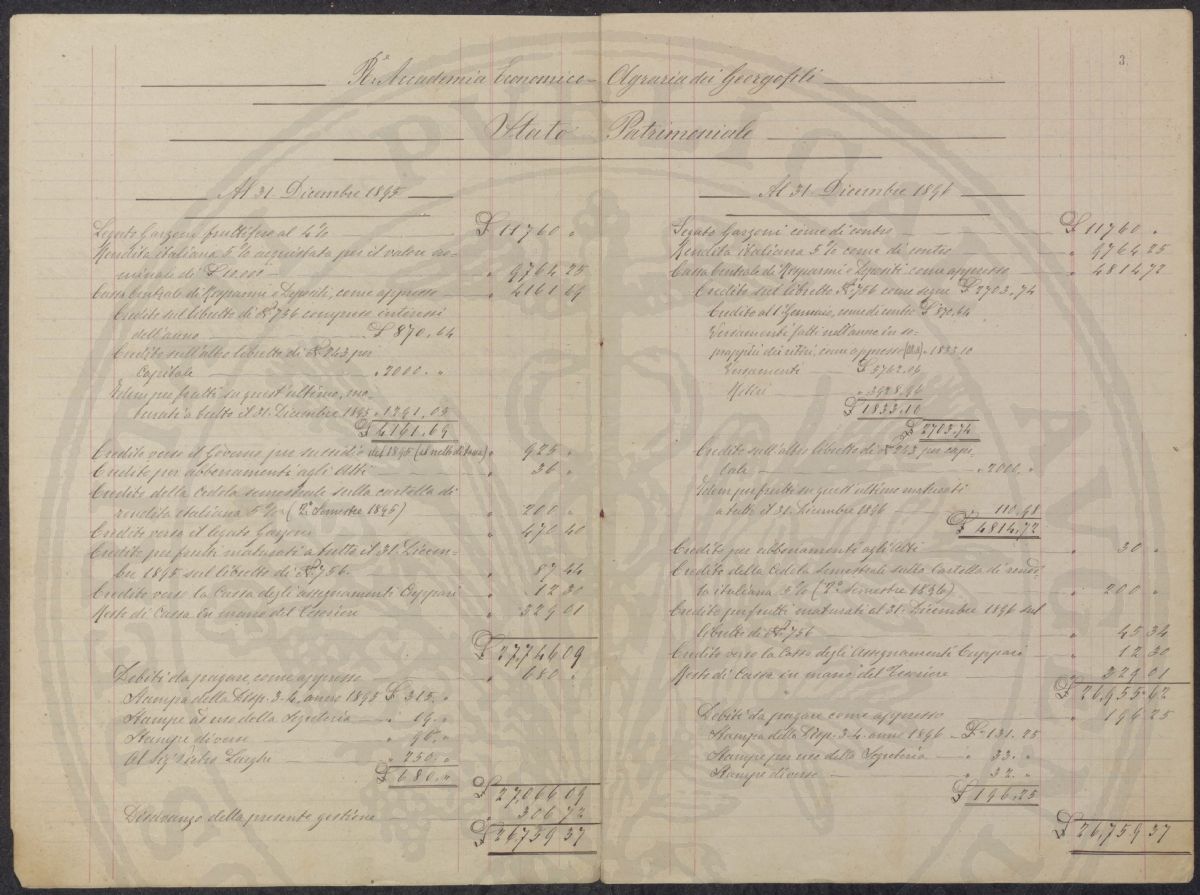 3.
Ra. Accademia Economico-Agraria dei Georgofili
Stato Patrimoniale
Al 31 Dicembre 1895
Legato Garzoni fruttifero al 4% £ 11760 "
Rendita italiana 5% acquistata per il valore no-
minale di £ 10.000 " 9764 25
Cassa Centrale di Risparmi e Depositi, come appresso " 4161 69
Credito sul libretto di No. 756 compresi interessi
dell'anno £ 870,64
Credito sull'altro libretto di No. 243 per
Capitale " 2000. "
Idem per frutti su quest'ultimo, ma-
turati a tutto il 31 Dicembre 1895 " 1291,05
£ 4161,69
Credito verso il Governo per sussidio del 1895 (al netto di tassa) " 925 "
Credito per abbonamenti agli Atti " 36 "
Credito della Cedola semestrale sulla cartella di
rendita italiana 5% (2o. Semestre 1895) " 200 "
Credito verso il legato Garzoni " 470 40
Credito per frutti maturati a tutto il 31 Dicem-
bre 1895 sul libretto di No. 756 " 87 44
Credito verso la Cassa degli assegnamenti Cuppari " 12 30
Resto di Cassa in mano del Tesoriere " 329 01
£ 27746 09
Debiti da pagare, come appresso " 680 "
Stampa della Disp. 3-4, anno 1895 £ 315. "
Stampe ad uso della Segreteria " 19. "
Stampe diverse " 96. "
Al Sig. Pietro " 250. "
£ 680. "
£ 27066 09
Disavanzo della presente gestione " 306 72
£ 26759 37
Al 31 Dicembre 1896
Legato Garzoni come di contro £ 11760 "
Rendita italiana 5% come di contro " 9764 25
Cassa Centrale di Risparmi e Depositi come appresso " 4814 72
Credito sul libretto No. 756 come segue £ 2703,74
Credito al 1o Gennaio, come di contro £ 870,64
Versamenti fatti nell'anno in so-
prappiù dei ritiri, come appresso " 1833.10
Versamenti £ 5762.06
Ritiri " 3928.96
£ 1833.10
£ 2703,74
Credito sull'altro libretto di No. 243 per capi-
tale " 2000. "
Idem per frutti su quest'ultimo maturati
a tutto il 31 Dicembre 1896 110.98
£ 4814,72
Credito per abbonamenti agli Atti " 30 "
Credito della Cedola Semestrale sulla Cartella di rendi-
ta italiana 5% (2o. Semestre 1896) " 200 "
Credito per frutti maturati al 31 Dicembre 1896 sul
libretto di No. 756 " 45 34
Credito verso la Cassa degli Assegnamenti Cuppari " 12 30
Resto di Cassa in mano del Tesoriere " 329 01
£ 26,955 62
Debiti da pagare come appresso " 196 25
Stampa della Disp. 3-4 anno 1896 £ 131. 25
Stampe per uso della Segreteria " 33. "
Stampe diverse " 32. "
£ 196.25
£ 26,759 37